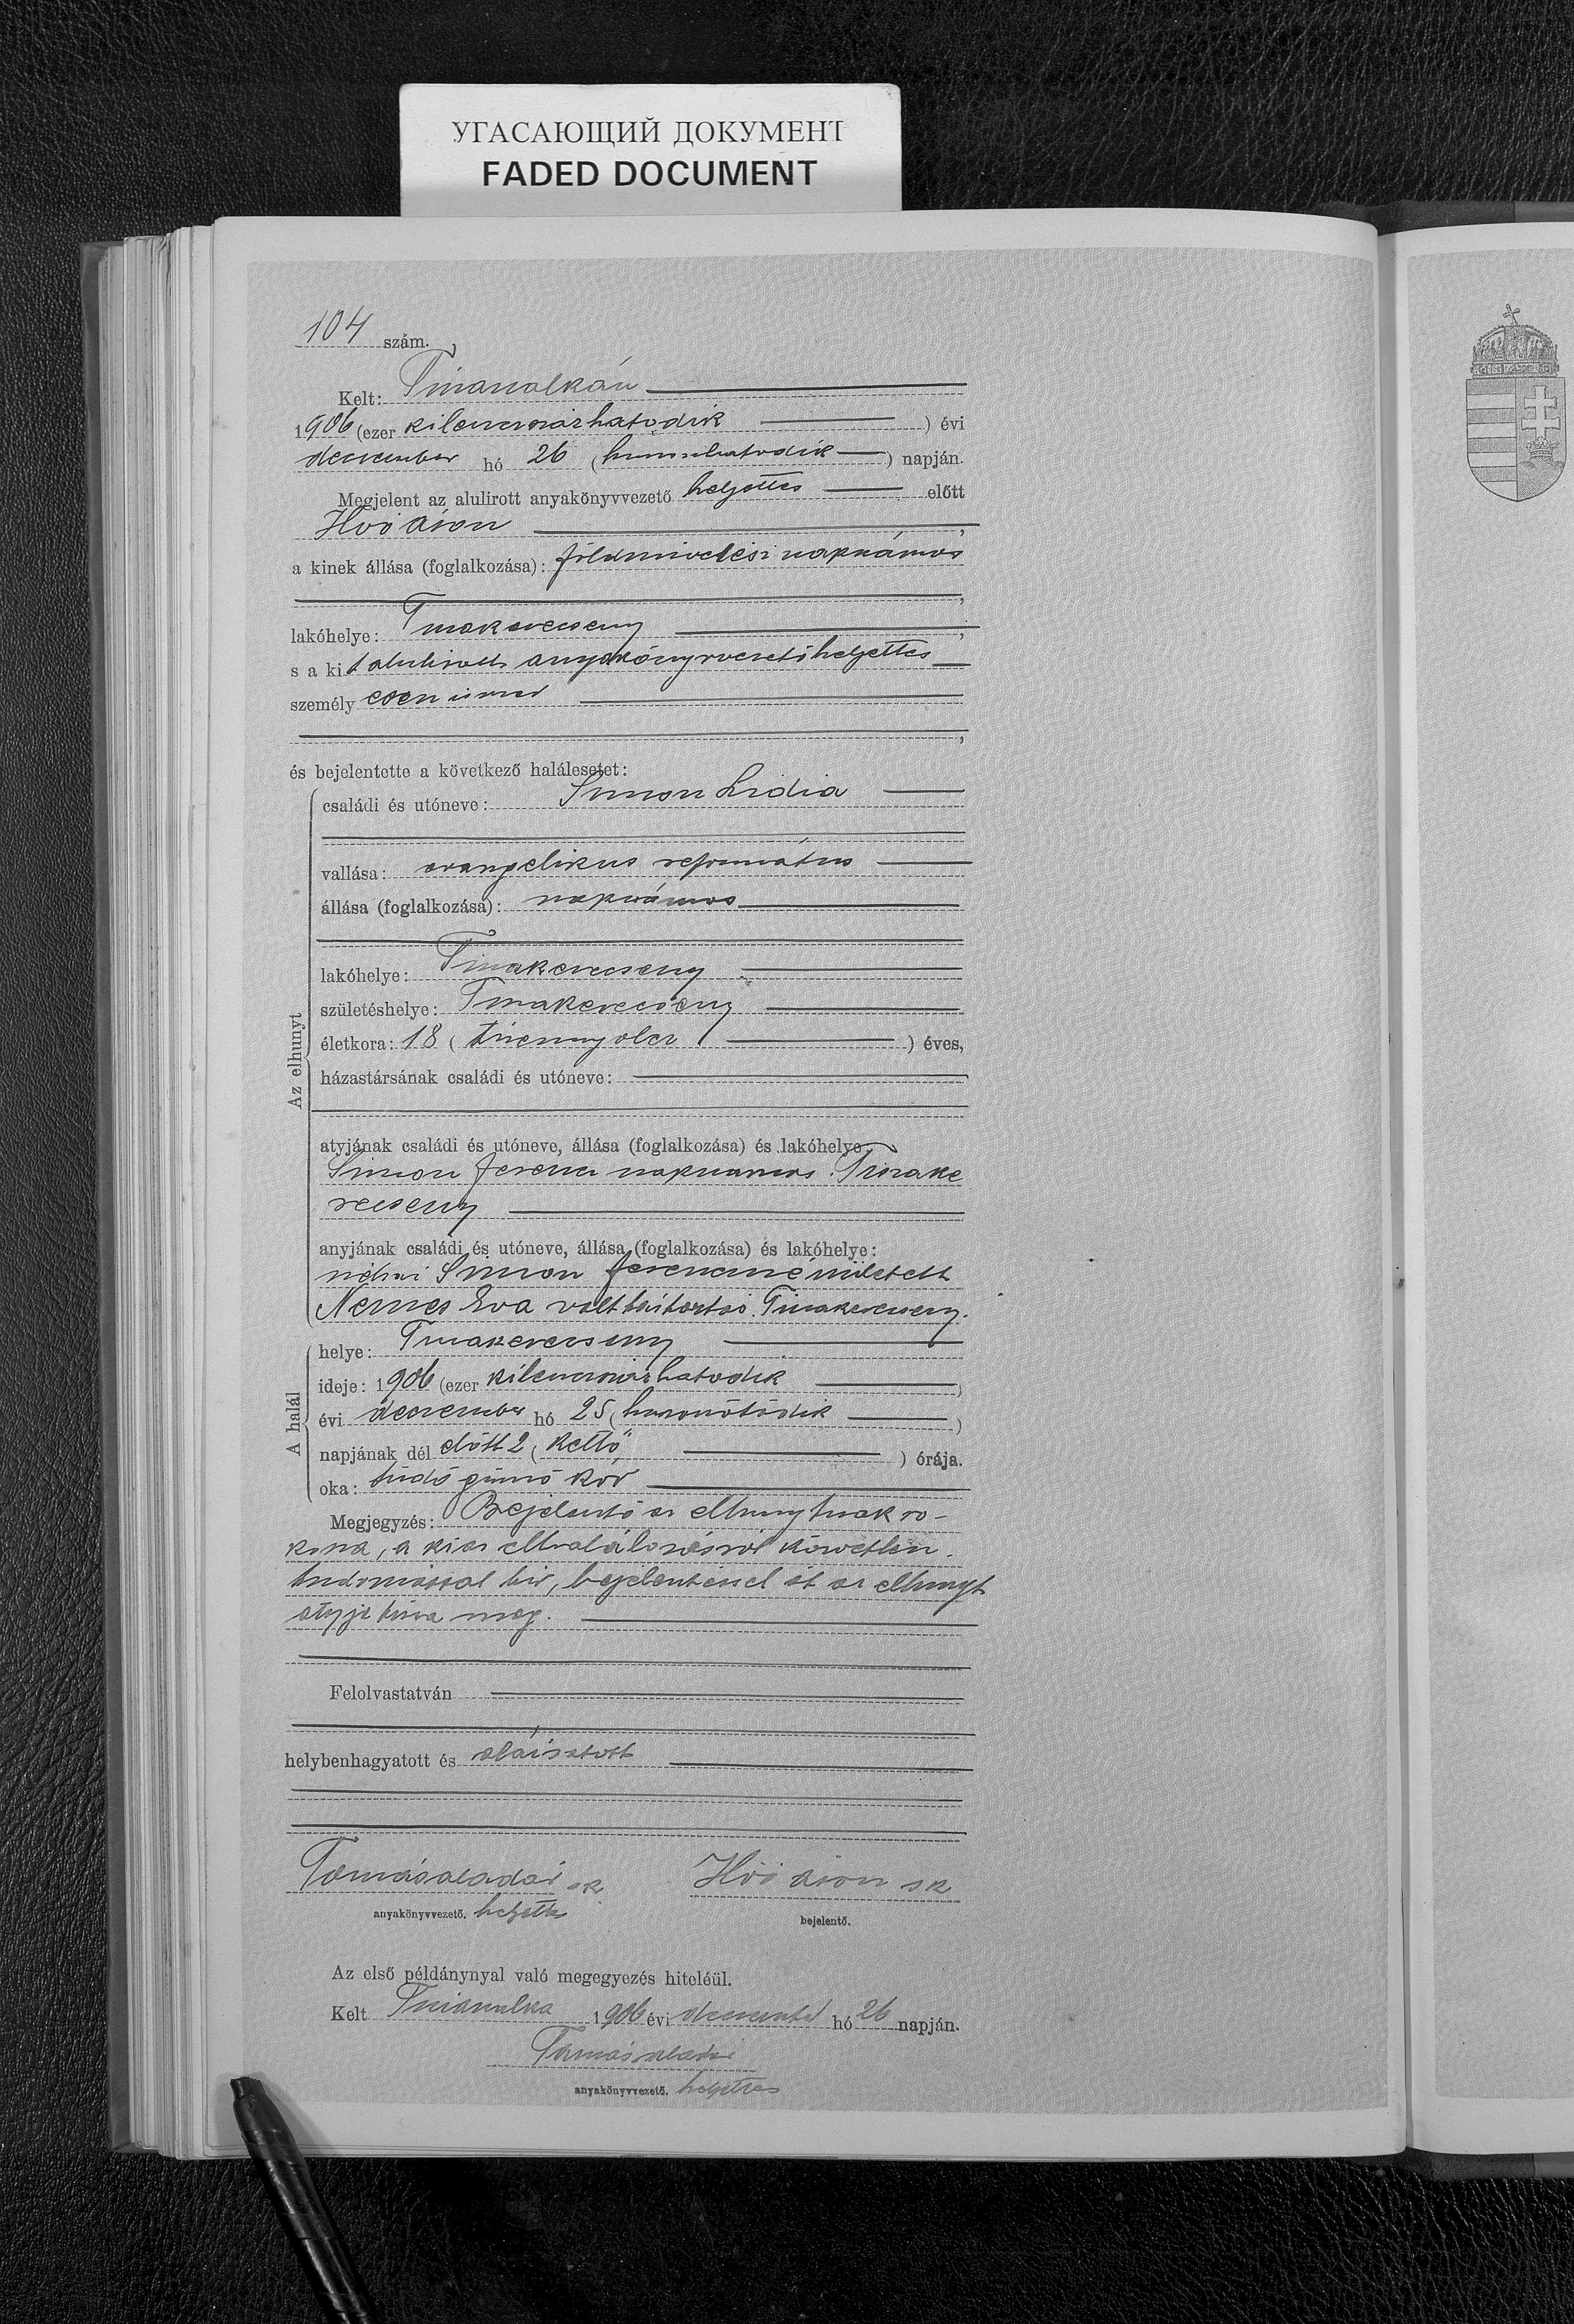 УГАСАЮЩИЙ ДОКУМЕНТ
FADED DOCUMENT
104 szám.
Kelt: Tiszaszalkán
1906 (ezer kilencszázhatodik) évi
december hó 26 (huszonhatodik) napján.
Megjelent az alulirott anyakönyvvezető helyettes előtt
Áron,
a kinek állása (foglalkozása): földmivelési napszámos
,
lakóhelye: Tiszakerecseny,
s a kit alulirott anyakönyvvezető helyettes
személyesen ismer
,
és bejelentette a következő halálesetet:
Az elhunyt
családi és utóneve: Simon Lidia
vallása: evangelikus református
állása (foglalkozása): napszámos
lakóhelye: Tiszakerecseny
születéshelye: Tiszakerecseny
életkora: 18 (tizennyolcz) éves,
házastársának családi és utóneve:
atyjának családi és utóneve, állása (foglalkozása) és lakóhelye:
Simon Ferencz napszámos. Tiszake
recseny
anyjának családi és utóneve, állása (foglalkozása) és lakóhelye:
néhai Simon Ferenczné született
Nemes Eva volt háztartás. Tiszakerecseny.
A halál
helye: Tiszakerecseny
ideje: 1906 (ezer kilenczszázhatodik)
évi deczember hó 25 (huszonötödik)
napjának dél előtt 2 (kettő) órája.
oka: tüdő gümő kór
Megjegyzés: Bejelentő az elhunytnak ro-
kona, a ki az elhalálozásról közvetlen
tudomással bir, bejelentéssel őt az elhunyt
atyja bizta meg.
Felolvastatván
helybenhagyatott és aláiratott
Tamás Aladár sk
anyakönyvvezető. helyettes
Áron sk
bejelentő.
Az első példánynyal való megegyezés hiteléül.
Kelt Tiszaszalka 1906 évi deczember hó 26 napján.
Tamás Aladár
anyakönyvvezető. helyettes